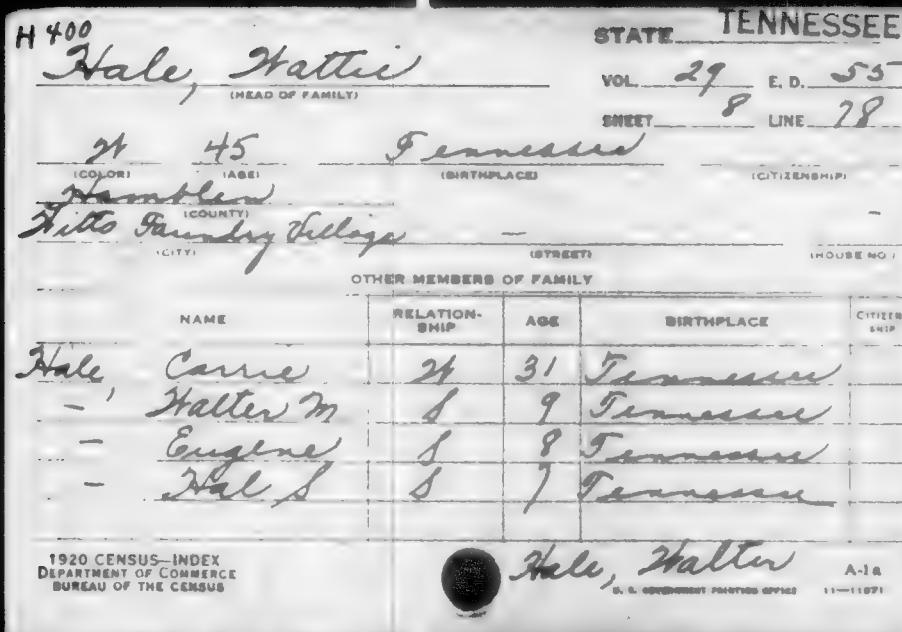 H 400
STATE TENNESSEE
Hale, Wattie
(HEAD OF FAMILY)
VOL. 29 E. D. 55
SHEET 8 LINE 78
W 45 Tennessee
(COLOR) (AGE) (BIRTHPLACE) (CITIZENSHIP)
Hamblen
(COUNTY)
Witts Foundry Village — -
(CITY) (STREET) (HOUSE NO.)
OTHER MEMBERS OF FAMILY
NAME RELATION-SHIP AGE BIRTHPLACE CITIZEN-SHIP
Hale, Carrie W 31 Tennessee
— Walter M S 9 Tennessee
— Eugene S 8 Tennessee
— Hal S S 7 Tennessee
1920 CENSUS—INDEX
DEPARTMENT OF COMMERCE
BUREAU OF THE CENSUS
Hale, Walter
A-1a
U. S. GOVERNMENT PRINTING OFFICE 11—11071